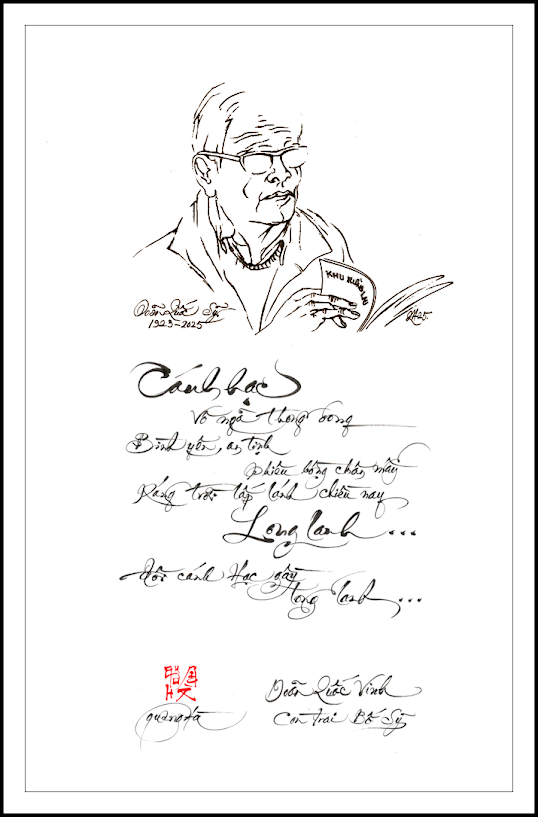 KHU RỪNG LAU
Doãn Quốc Sỹ
1923-2025
Cánh hạc
Vô ngã thong dong
Bình yên, an tịnh
phiêu bồng chân mây
Ráng trời lấp lánh chiều nay
Long lanh...
Đôi cánh Hạc gầy
Long lanh...
Doãn Quốc Vinh
Con trai Bố Sỹ